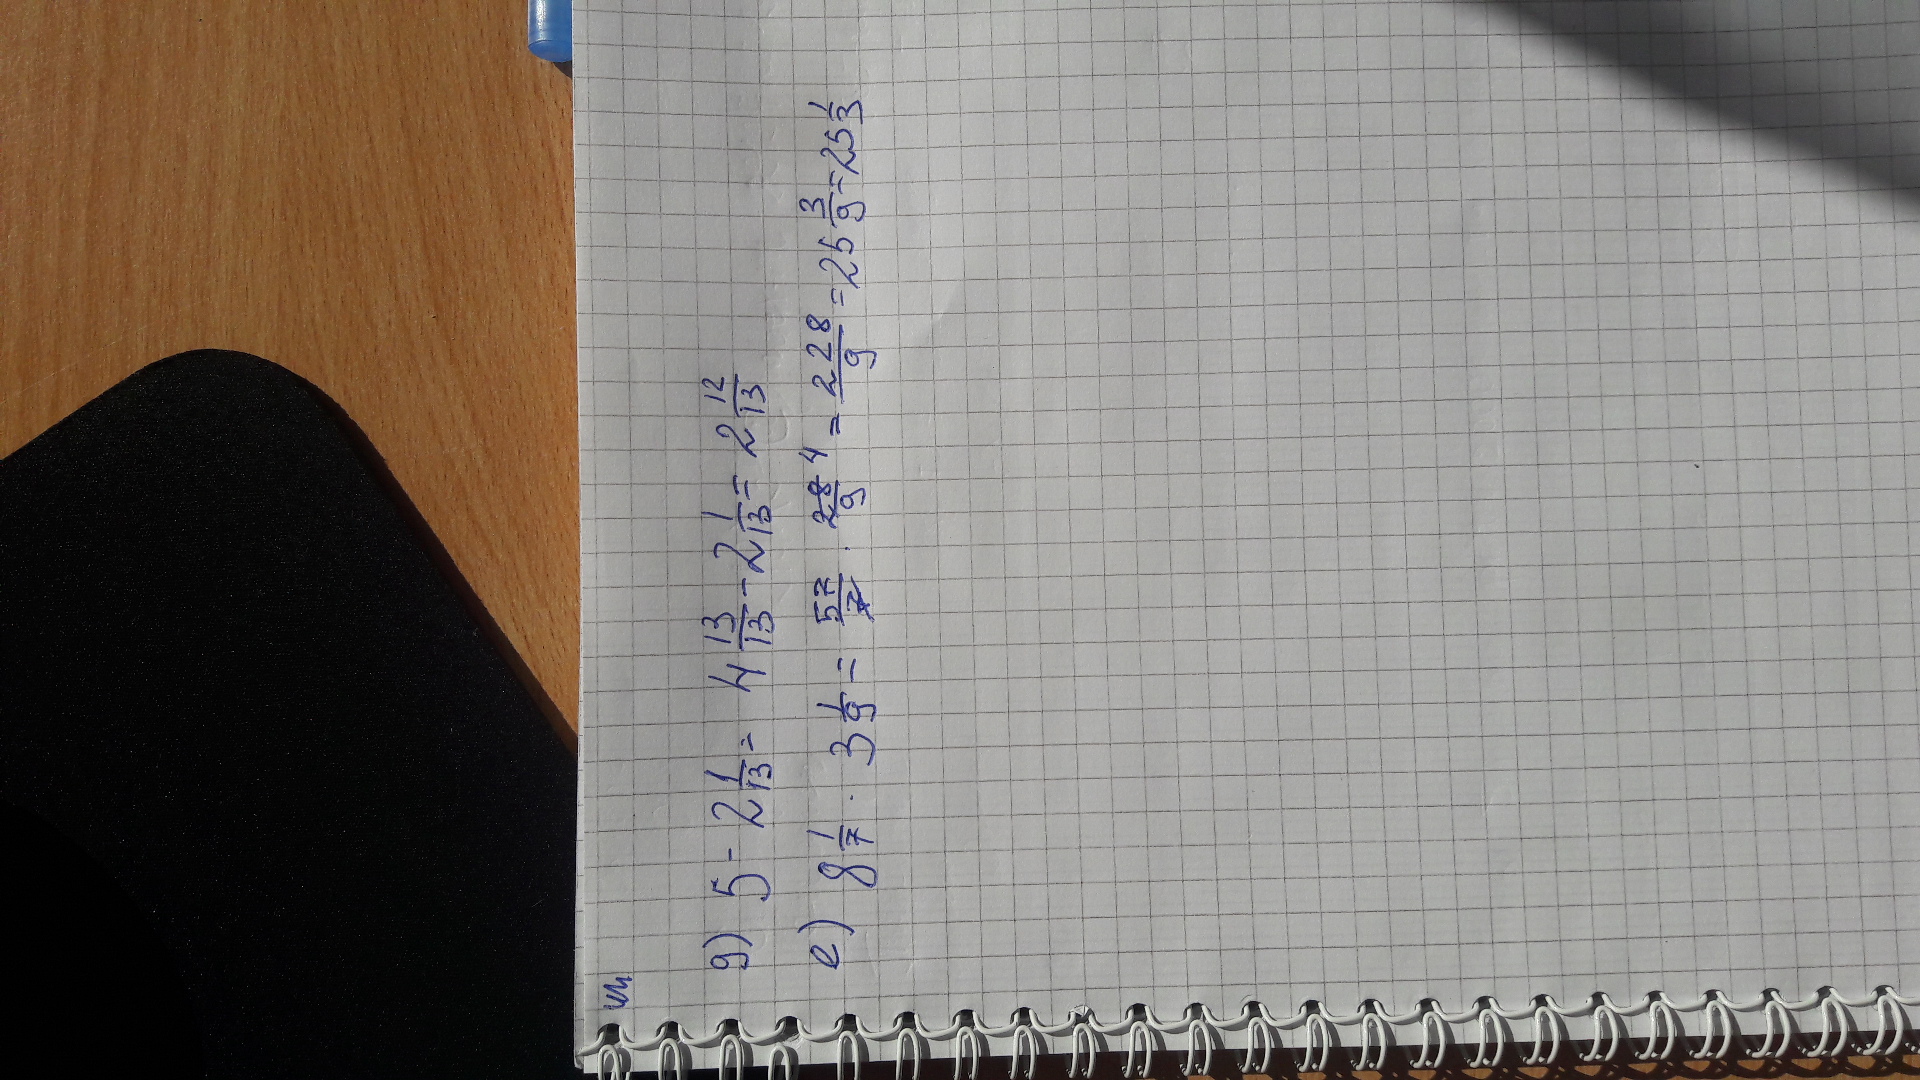 д) 5 - 2 1/13 = 4 13/13 - 2 1/13 = 2 12/13
е) 8 1/7 · 3 1/9 = 57/7 · 28/9 4 = 228/9 = 25 3/9 = 25 1/3